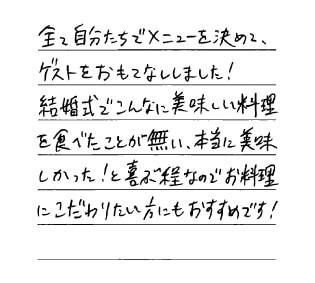 全て自分たちでメニューを決めて、
ゲストをおもてなししました!
結婚式でこんなに美味しい料理
を食べたことが無い、本当に美味
しかった!と喜ぶ程なのでお料理
にこだわりたい方にもおすすめです!